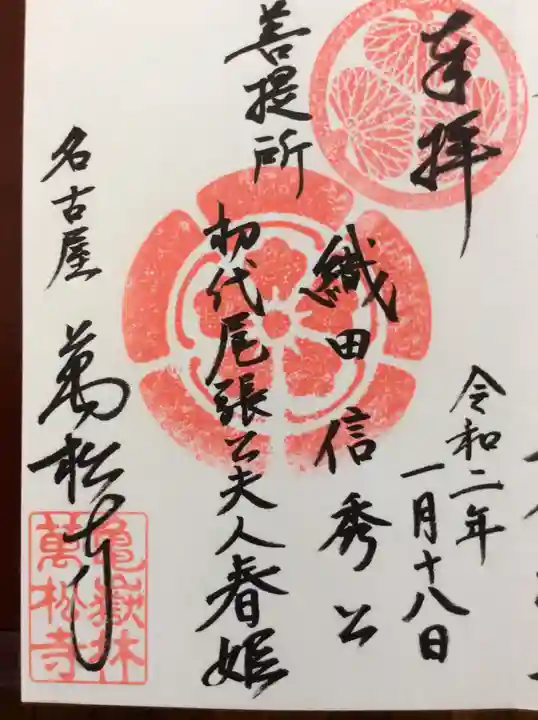 奉拝
令和二年
一月十八日
織田信秀公
初代尾張公夫人春姫
菩提所
名古屋
萬松寺
亀嶽林
萬松寺